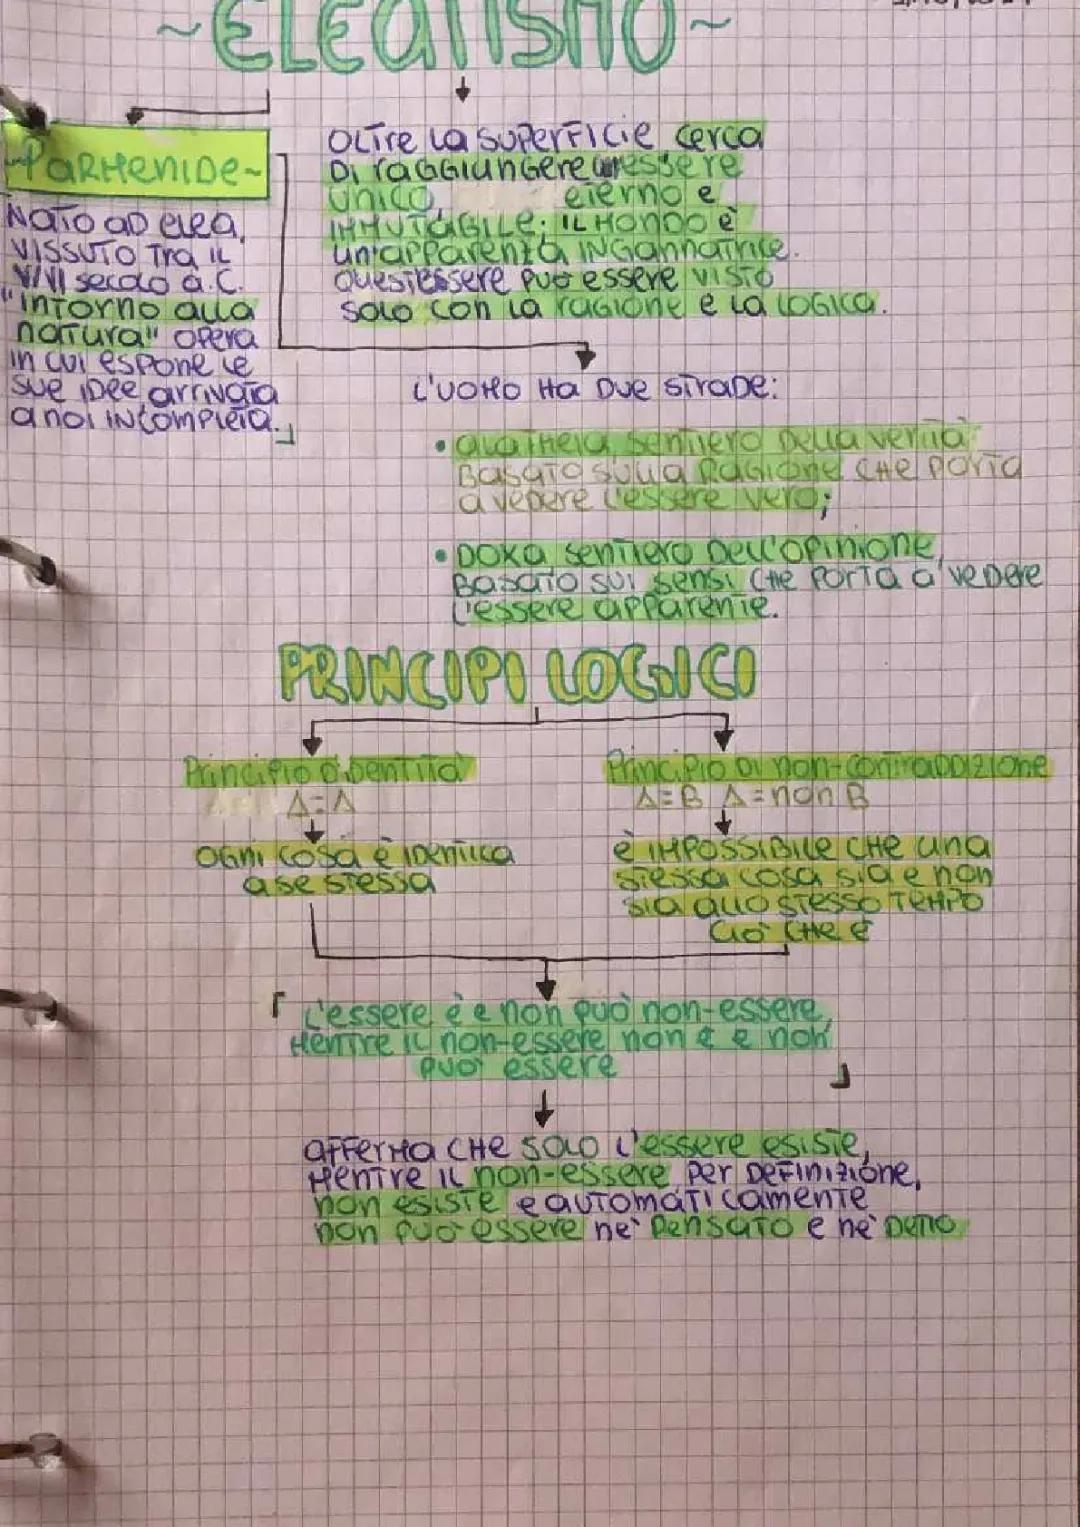 ~ELEATISMO~
~PARMENIDE~
NATO AD ELEA,
VISSUTO TRA IL
V/VI secolo a.C.
"INTORNO alla
natura" opera
in cui espone le
sue idee, arrivata
a noi INCOMPLETA.
OLTRE LA SUPERFICIE cerca
DI RAGGIUNGERE un essere
unico, eterno e
IMMUTABILE: IL MONDO è
un'apparenza INGANNATRICE.
Quest'essere può essere VISTO
solo con la ragione e la LOGICA.
L'UOMO HA DUE STRADE:
• alatheia sentiero della verità
BASATO sulla RAGIONE CHE PORTA
a vedere l'essere vero;
• DOXA sentiero Dell'opinione,
BASATO SUI sensi CHE PORTA a vedere
l'essere apparente.
PRINCIPI LOGICI
Principio d'identità
A=A
OGNI COSA è IDENTICA
a se stessa
Principio DI non-contraddizione
A=B A=non B
è IMPOSSIBILE CHE una
stessa cosa sia e non
sia allo stesso TEMPO
ciò CHE è
L'essere è e non può non-essere,
mentre il non-essere non è e non
può essere
afferma CHE solo l'essere esiste,
mentre il non-essere per DEFINIZIONE,
non esiste e automaticamente
non può essere nè pensato e nè detto